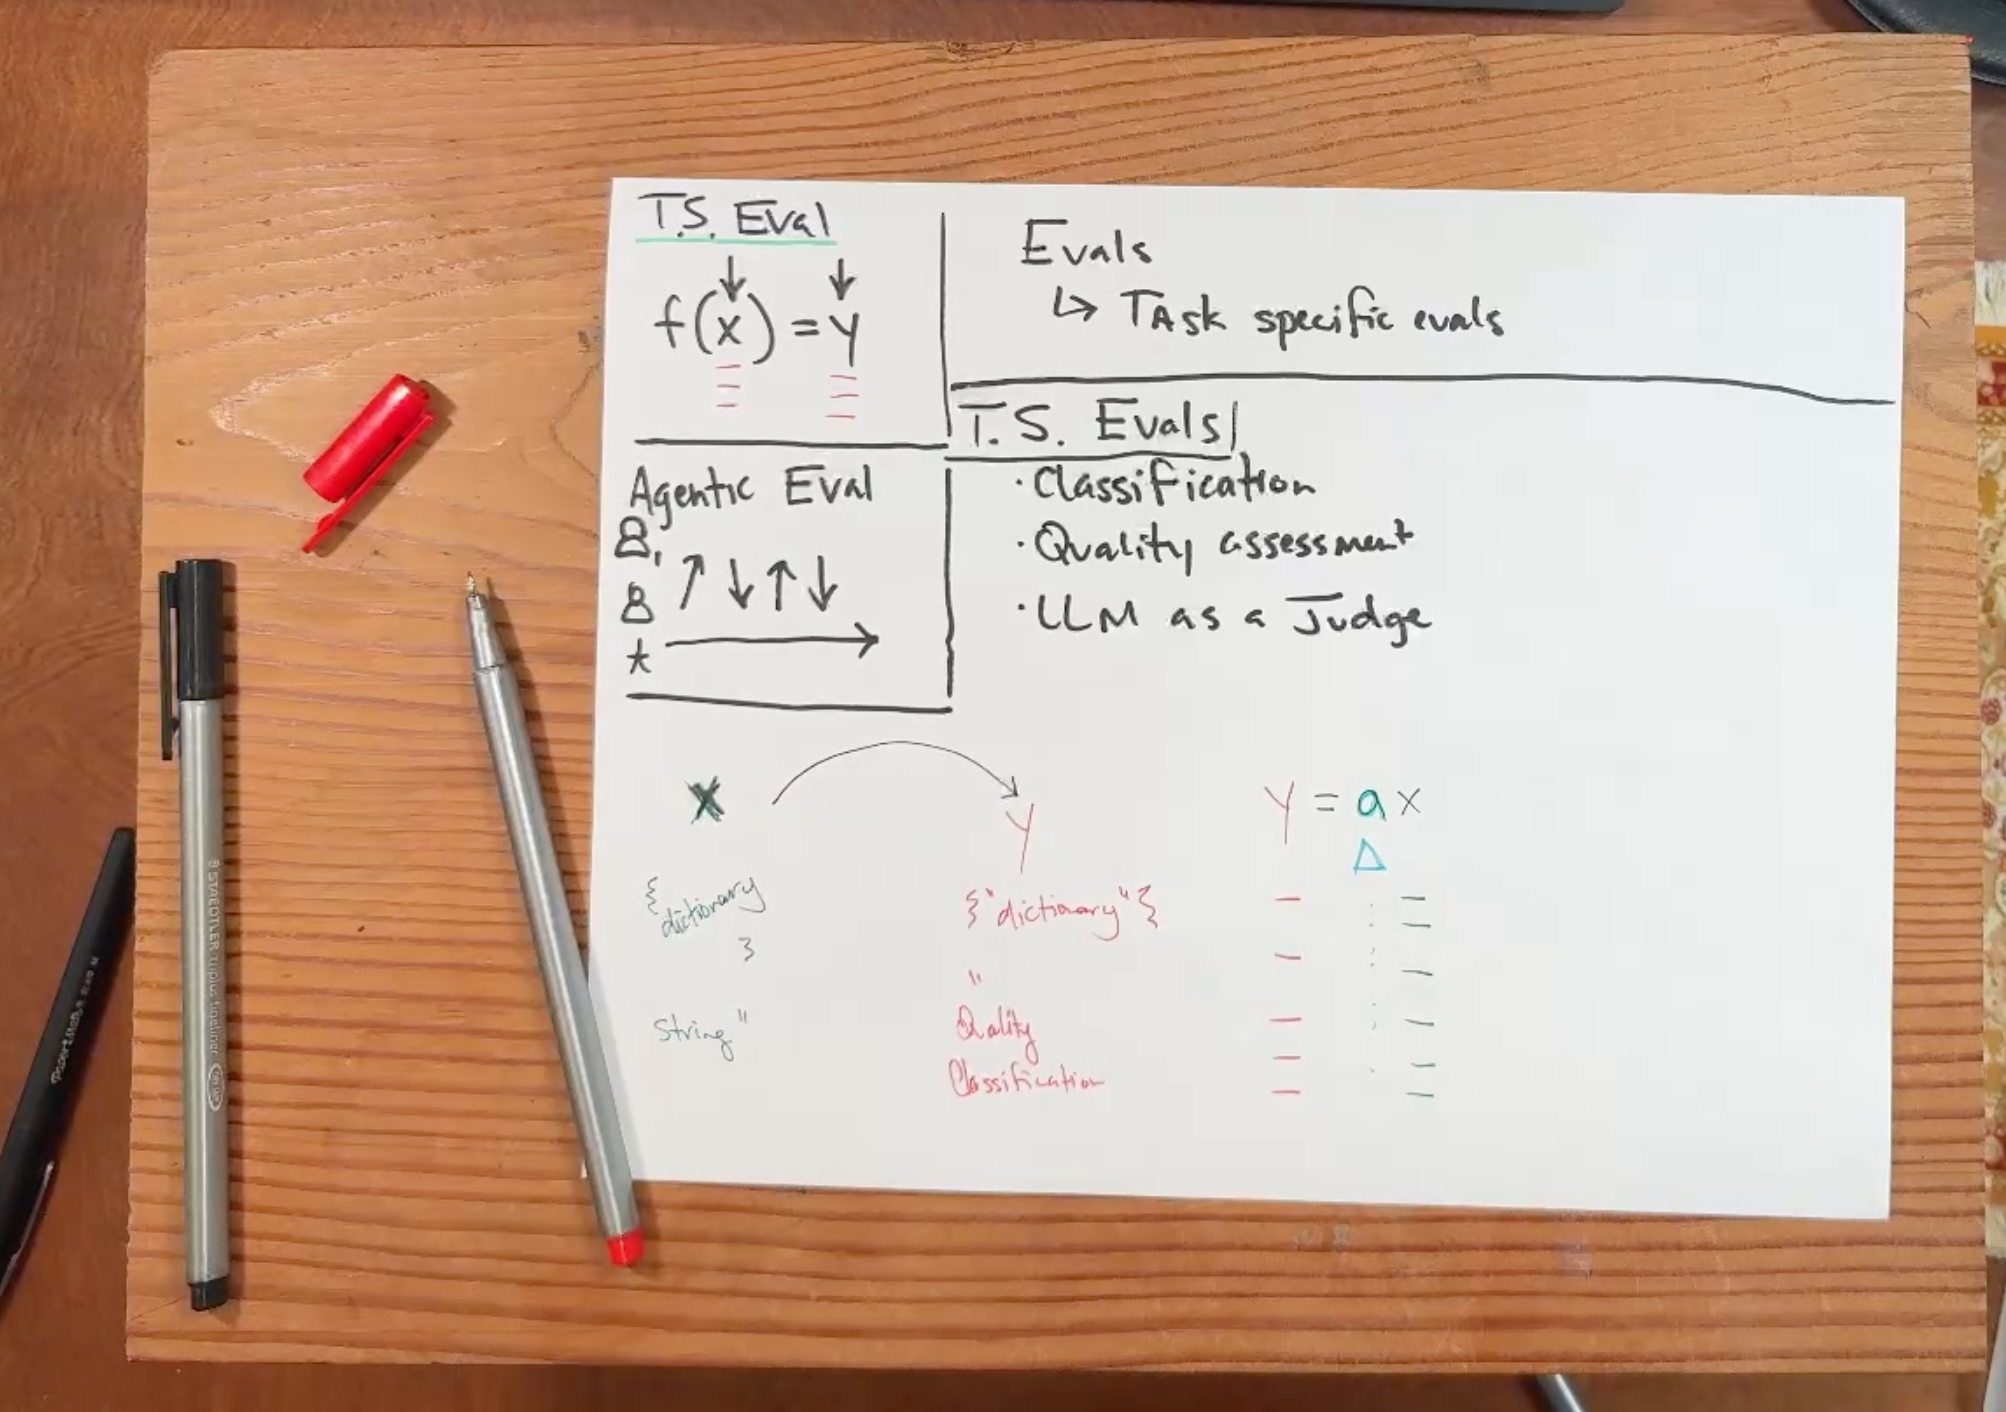 T.S. Eval
f(x) = y
Evals
↳ TASk specific evals
T.S. Evals
· Classification
· Quality assessment
· LLM as a Judge
Agentic Eval
x
y
y = a x
Δ
{
dictionary
}
{"dictionary"}
"
String"
Quality
Classification
STAEDTLER triplus fineliner